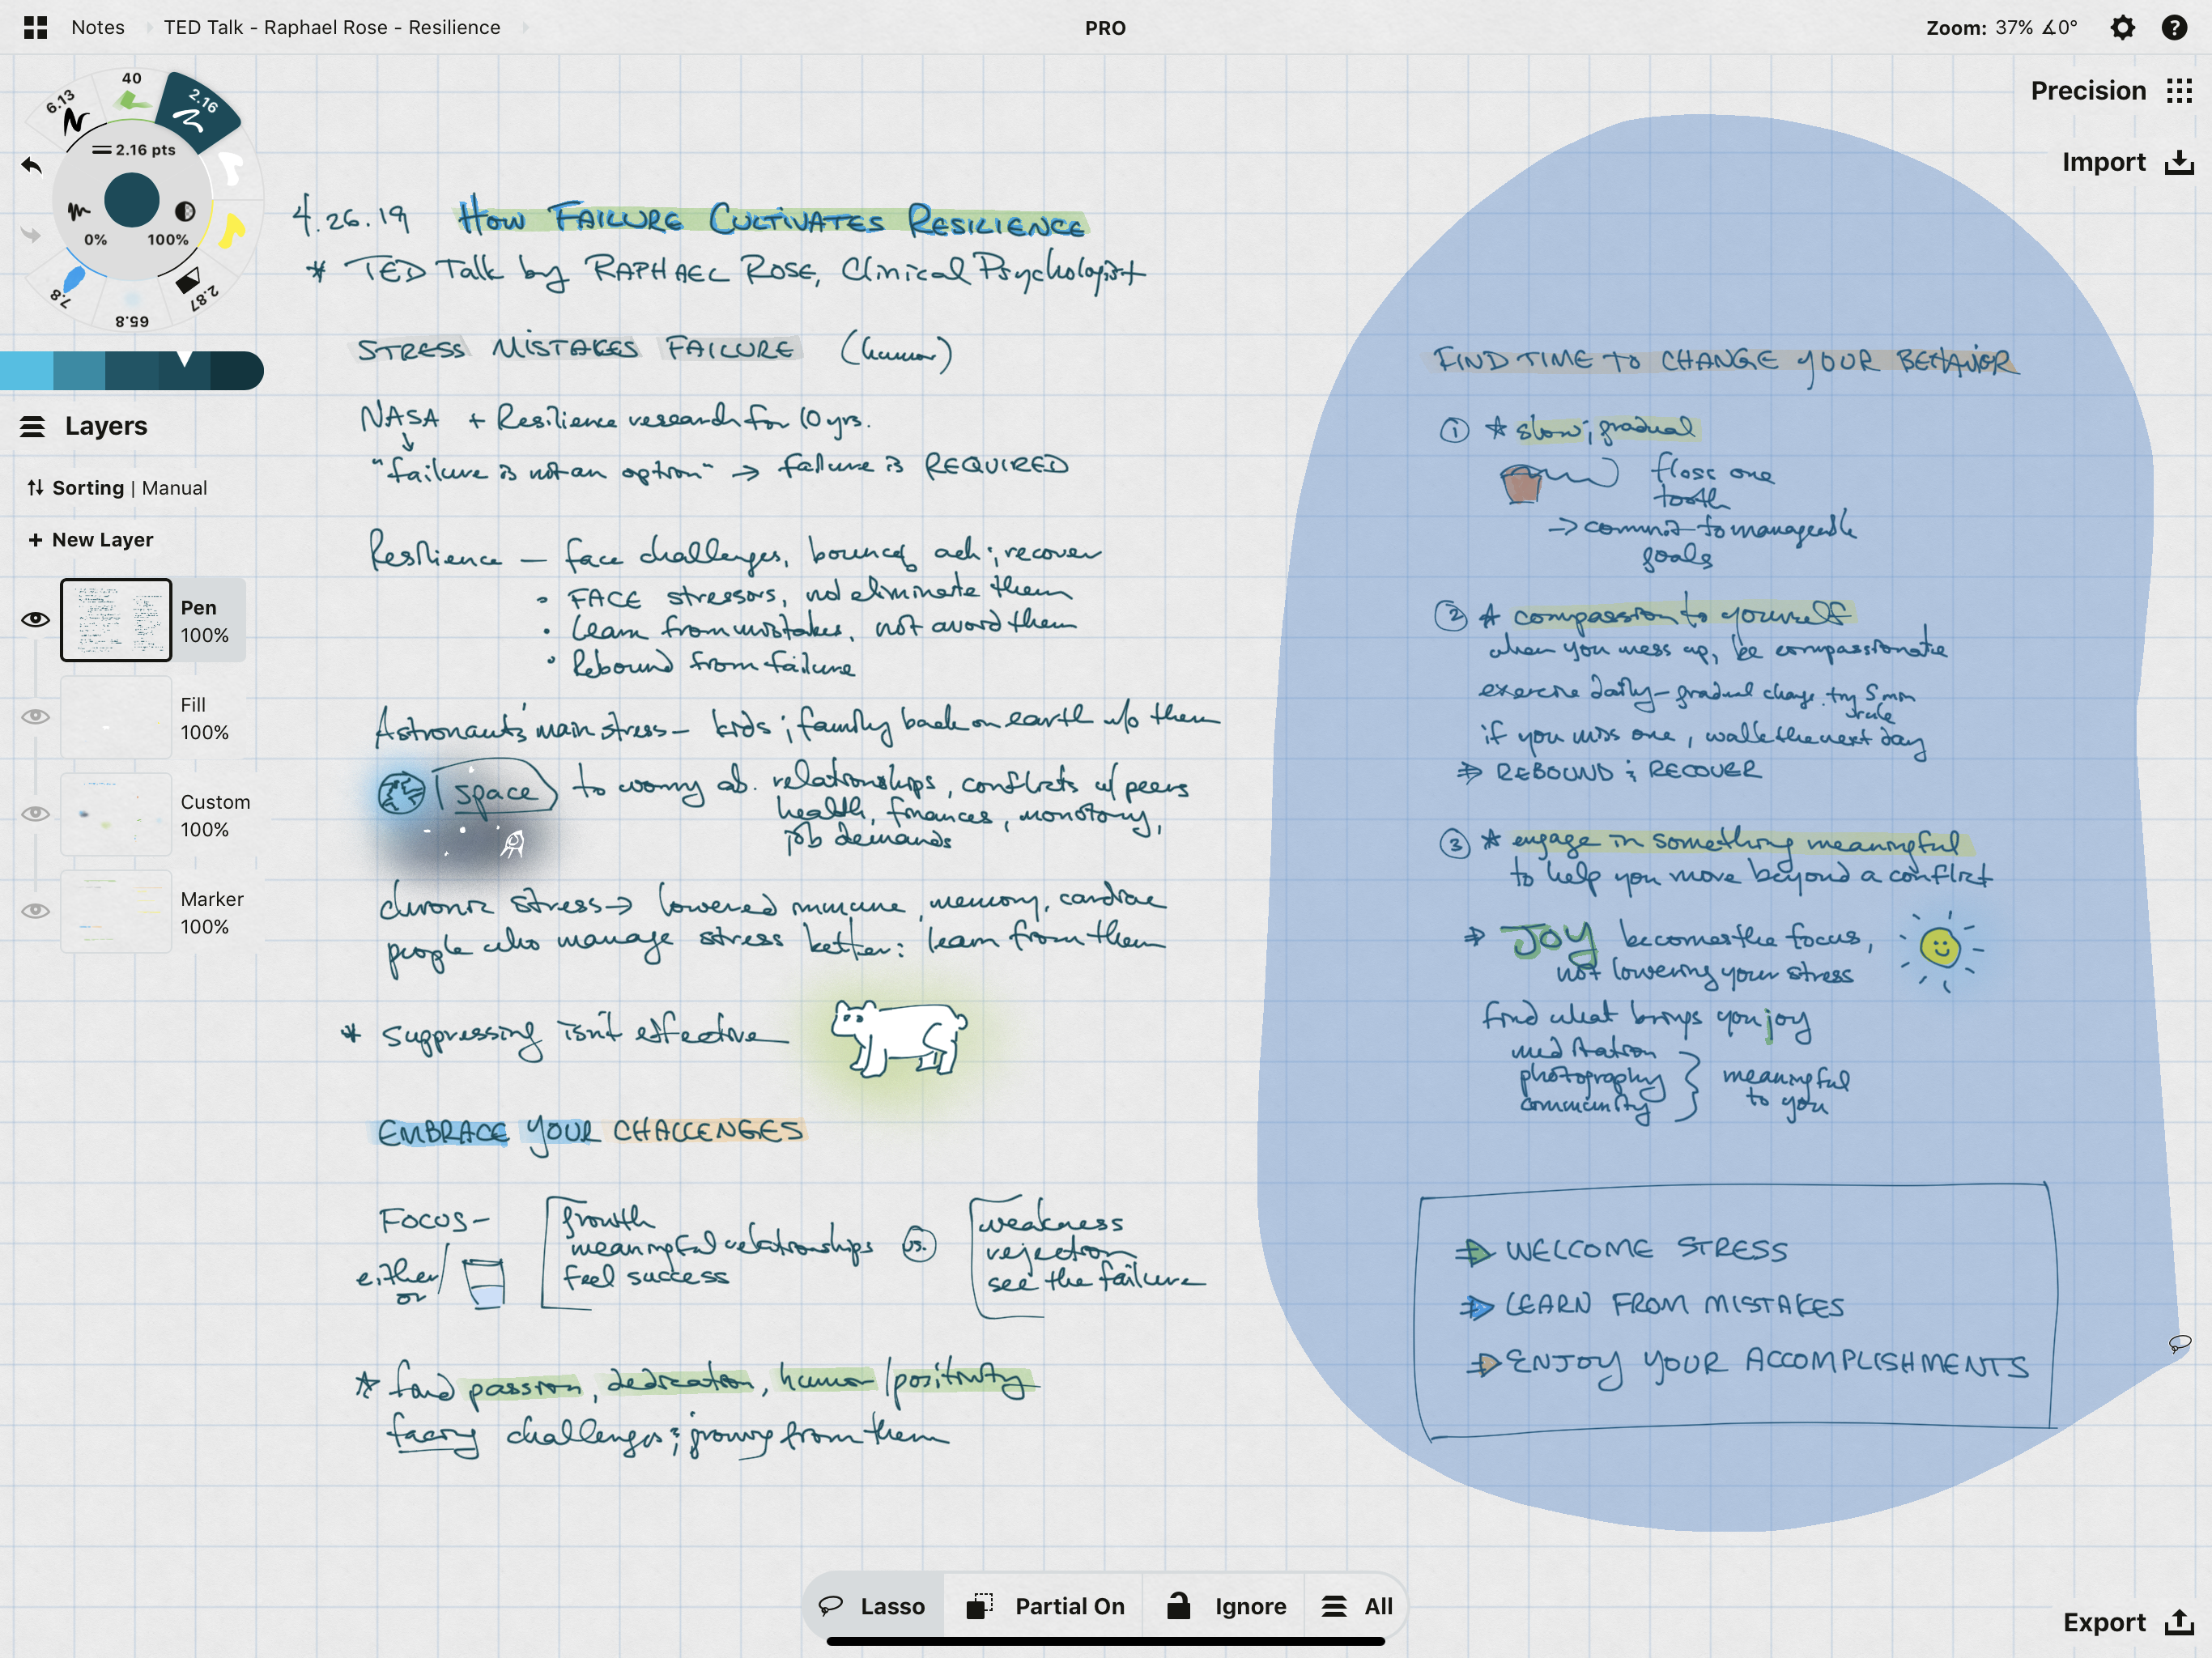 Notes
TED Talk - Raphael Rose - Resilience
PRO
Zoom: 37% ∡0°
Precision
Import
40
6.13
2.16
2.16 pts
0%
100%
7.8
65.8
2.87
Layers
Sorting | Manual
+ New Layer
Pen
100%
Fill
100%
Custom
100%
Marker
100%
4.26.19 HOW FAILURE CULTIVATES RESILIENCE
* TED Talk by RAPHAEL ROSE, Clinical Psychologist
STRESS MISTAKES FAILURE (humor)
NASA + Resilience research for 10 yrs.
↓
"failure is not an option" → failure is REQUIRED
Resilience — face challenges, bounce back & recover
• FACE stressors, not eliminate them
• learn from mistakes, not avoid them
• Rebound from failure
Astronauts' main stress - kids & family back on earth w/o them
space to worry ab. relationships, conflicts w/ peers
health, finances, monotony,
job demands
chronic stress → lowered immune, memory, cardiac
people who manage stress better: learn from them
* suppressing isn't effective
EMBRACE YOUR CHALLENGES
FOCUS -
either/
or
growth
meaningful relationships
feel success
vs.
weakness
rejection
see the failure
* find passion, dedication, humor/positivity
facing challenges & growing from them
FIND TIME TO CHANGE YOUR BEHAVIOR
① * slow & gradual
floss one
tooth
→ commit to manageable
goals
② * compassion to yourself
when you mess up, be compassionate
exercise daily - gradual change. try 5 min
rule
if you miss one, walk the next day
⇒ REBOUND & RECOVER
③ * engage in something meaningful
to help you move beyond a conflict
⇒ JOY becomes the focus,
not lowering your stress
find what brings you joy
meditation
photography
community
} meaningful
to you
⇒ WELCOME STRESS
⇒ LEARN FROM MISTAKES
⇒ ENJOY YOUR ACCOMPLISHMENTS
Lasso
Partial On
Ignore
All
Export